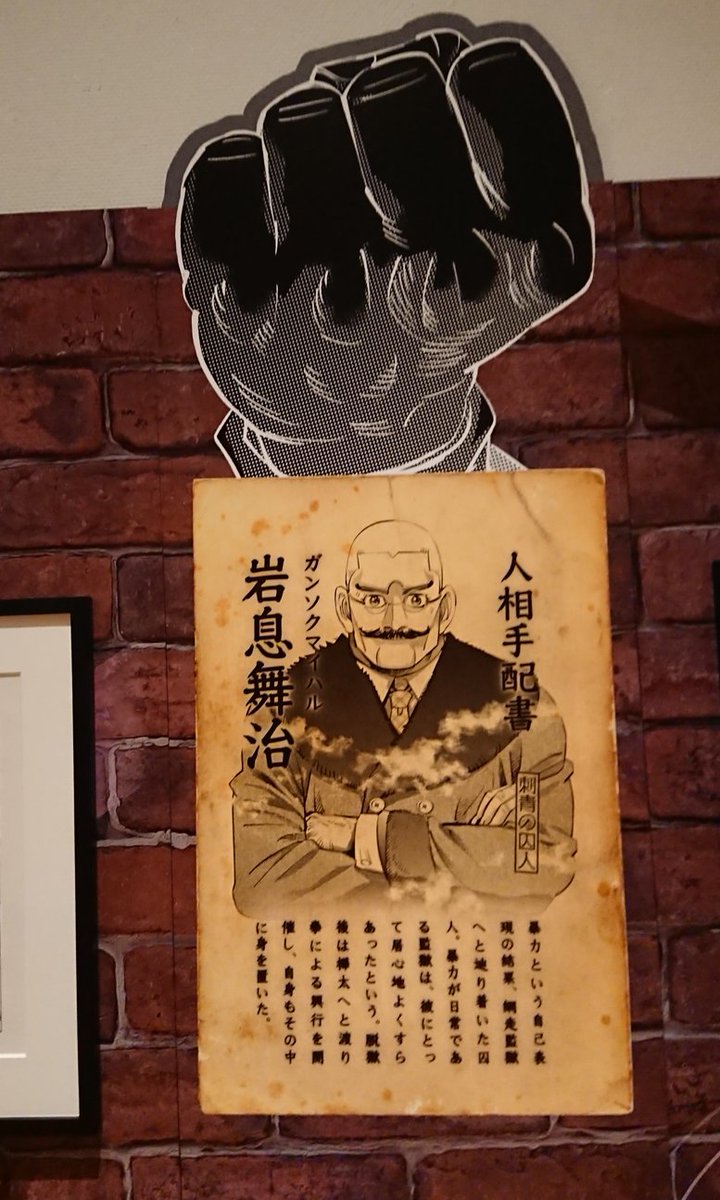 人相手配書
刺青の囚人
ガンソクマイハル
岩息舞治
暴力という自己表
現の結果、網走監獄
へと辿り着いた囚
人。暴力が日常であ
る監獄は、彼にとっ
て居心地よくすら
あったという。脱獄
後は樺太へと渡り
拳による興行を開
催し、自身もその中
に身を置いた。